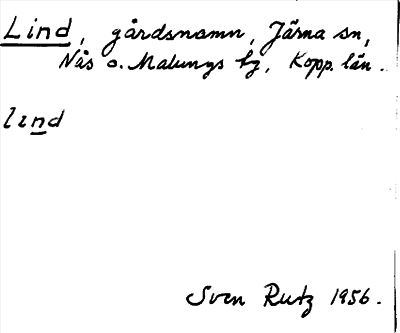 Lind, gårdsnamn, Järna sn,
Nås o. Malungs hj, Kopp. län.
lind
Sven Rutz 1956.